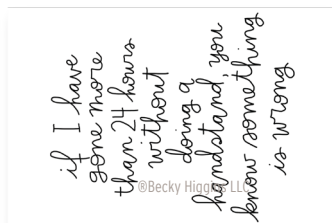 if I have
gone more
than 24 hours
without
doing a
handstand, you
know something
is wrong
®Becky Higgins LLC